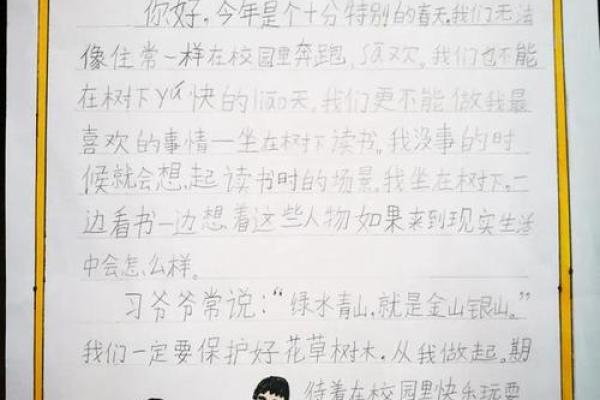 你好,今年是个十分特别的春天,我们无法
像住常一样在校园里奔跑,sā欢。我们也不能
在树下yú快的liáo天,我们更不能做我最
喜欢的事情一坐在树下读书。我没事的时
候就会想起读书时的场景,我坐在树下,一
边看书一边想着这些人物如果来到现实生活
中会怎么样。
习爷爷常说:“绿水青山,就是金山银山。”
我们一定要保护好花草树木,从我做起。期
待着在校园里快乐玩耍